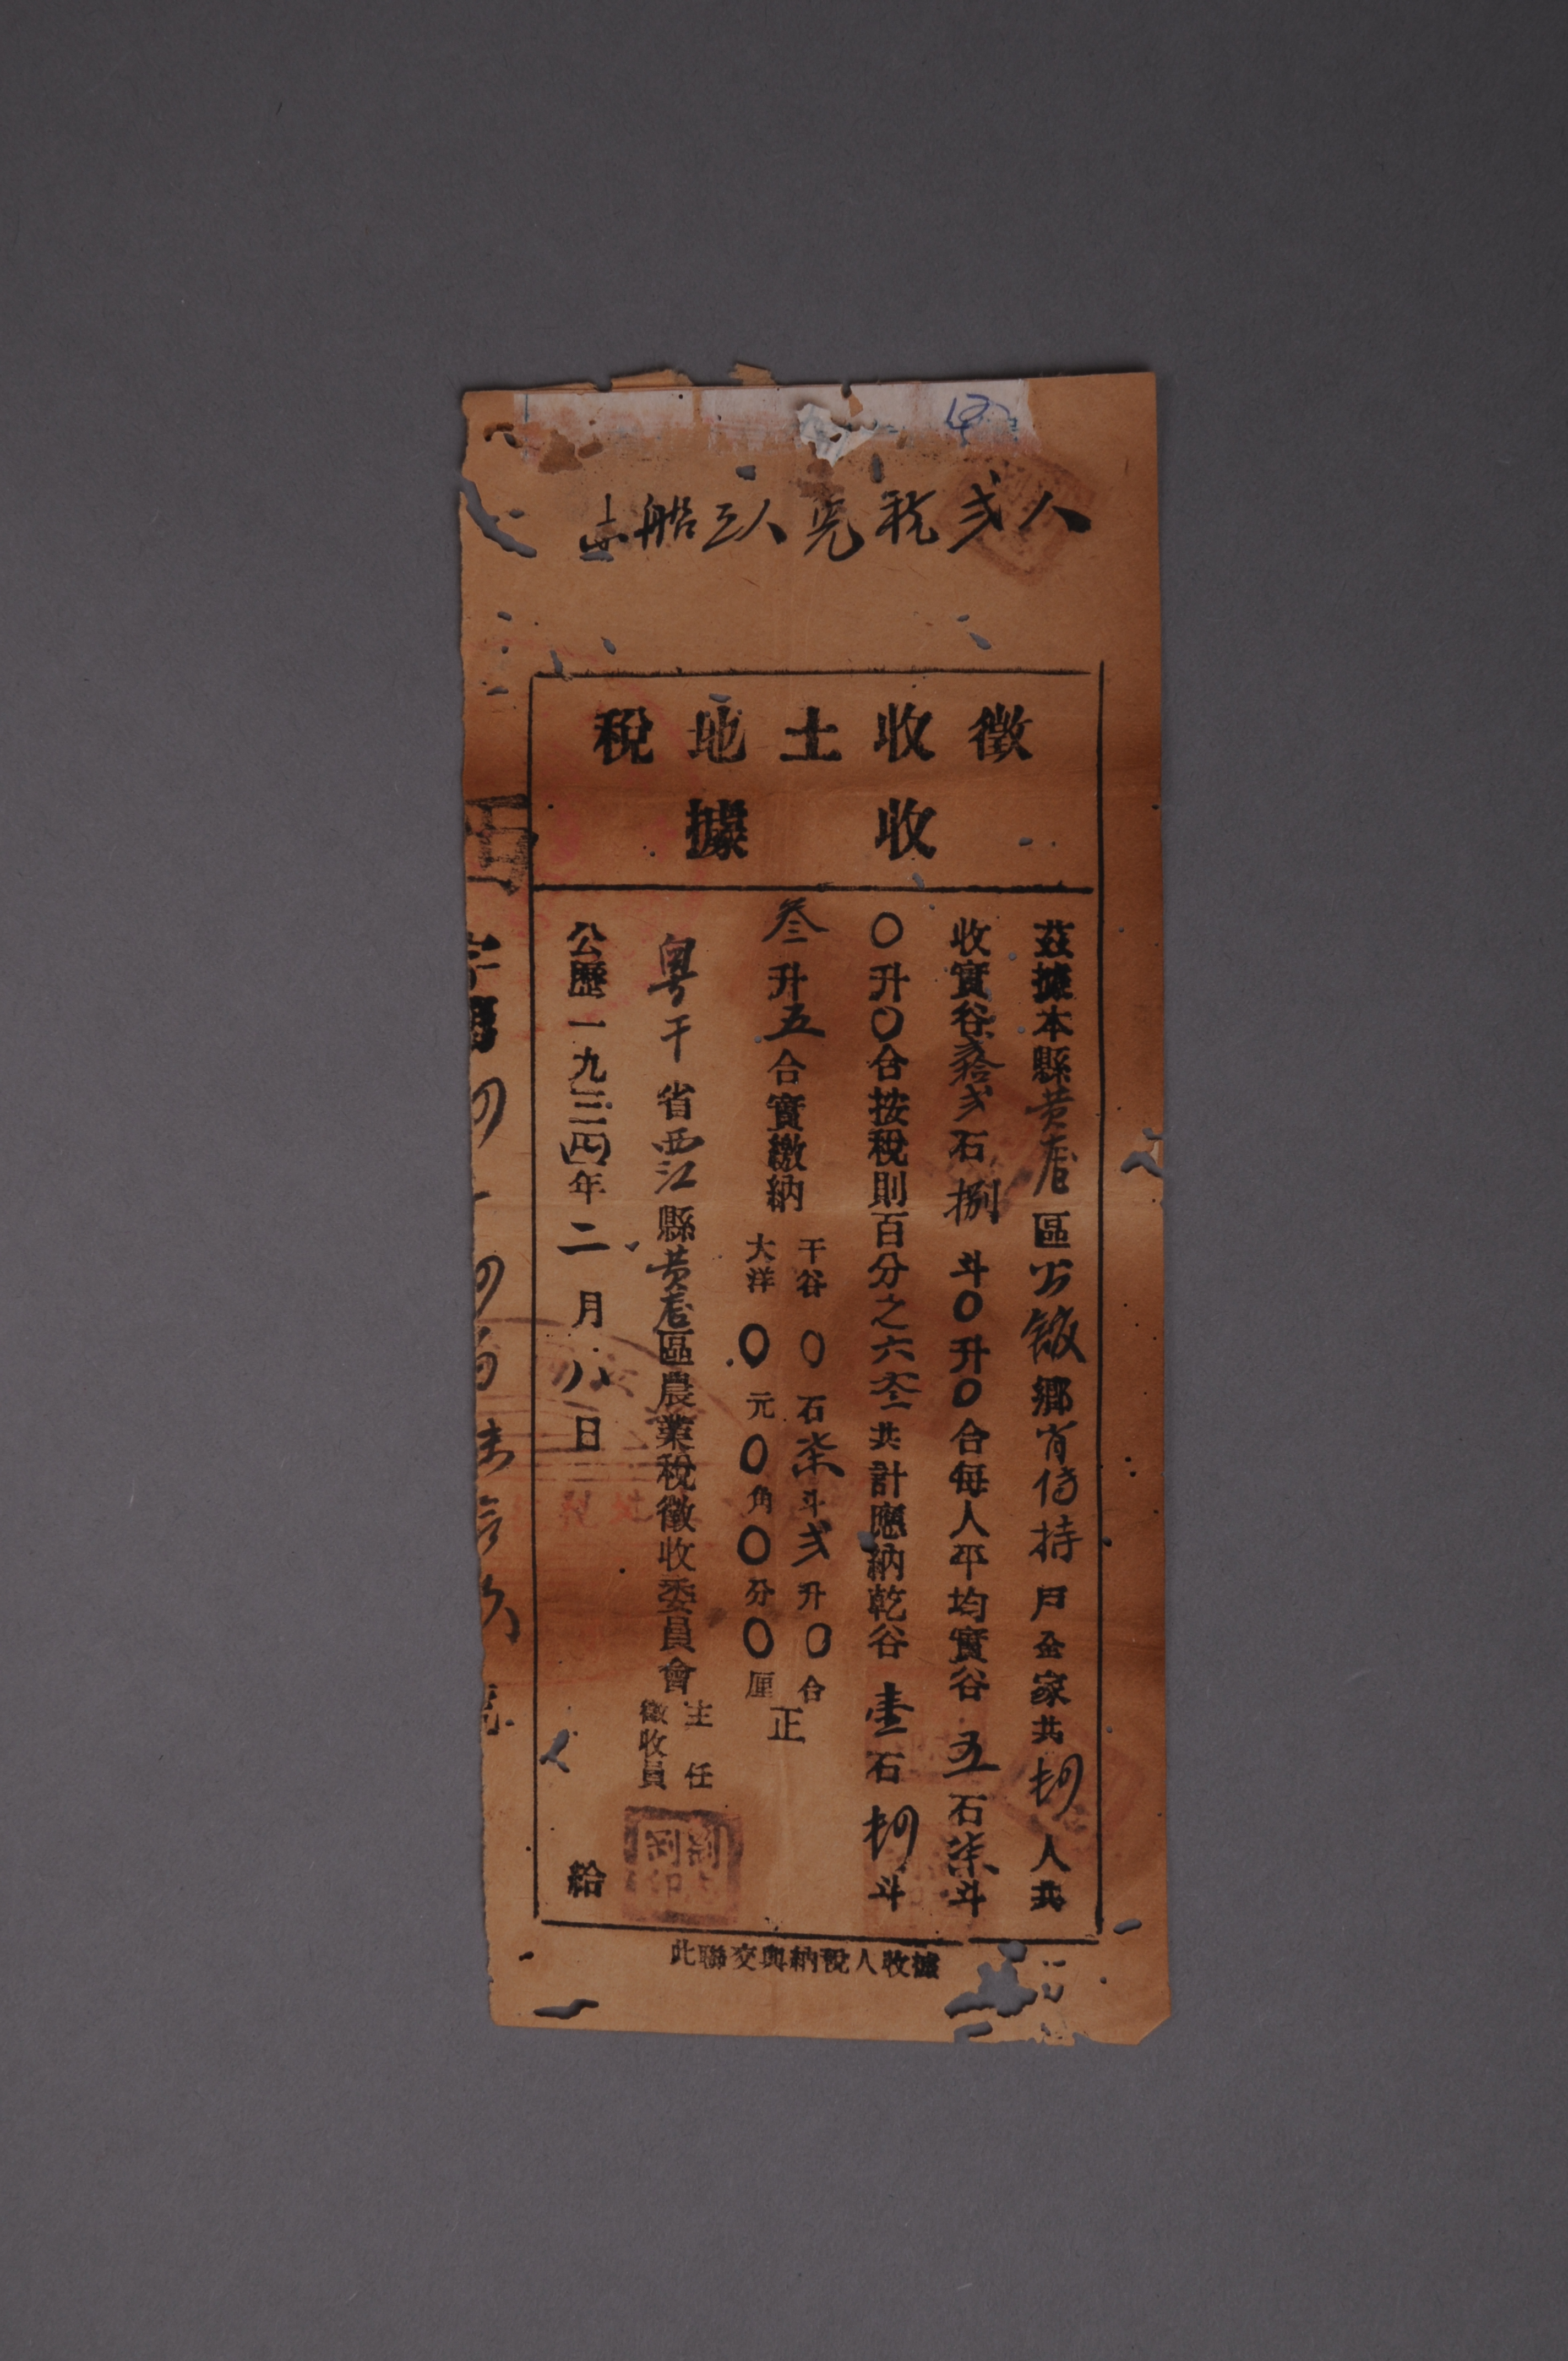 人弍税免人三船志
徵收土地稅
收據
茲據本縣黄㡳區公館鄉肖侍持戶全家共四人共
收實谷弍拾弍石捌斗〇升〇合每人平均實谷五石柒斗
〇升〇合按稅則百分之六叁共計應納乾谷壹石四斗
叁升五合實繳納
干谷〇石柒斗弍升〇合
大洋〇元〇角〇分〇厘
正
粤干省西江縣黄㡳區農業稅徵收委員會
主任
徵收員
公歷一九三(四)年二月八日
給
據收人稅納與交聯此